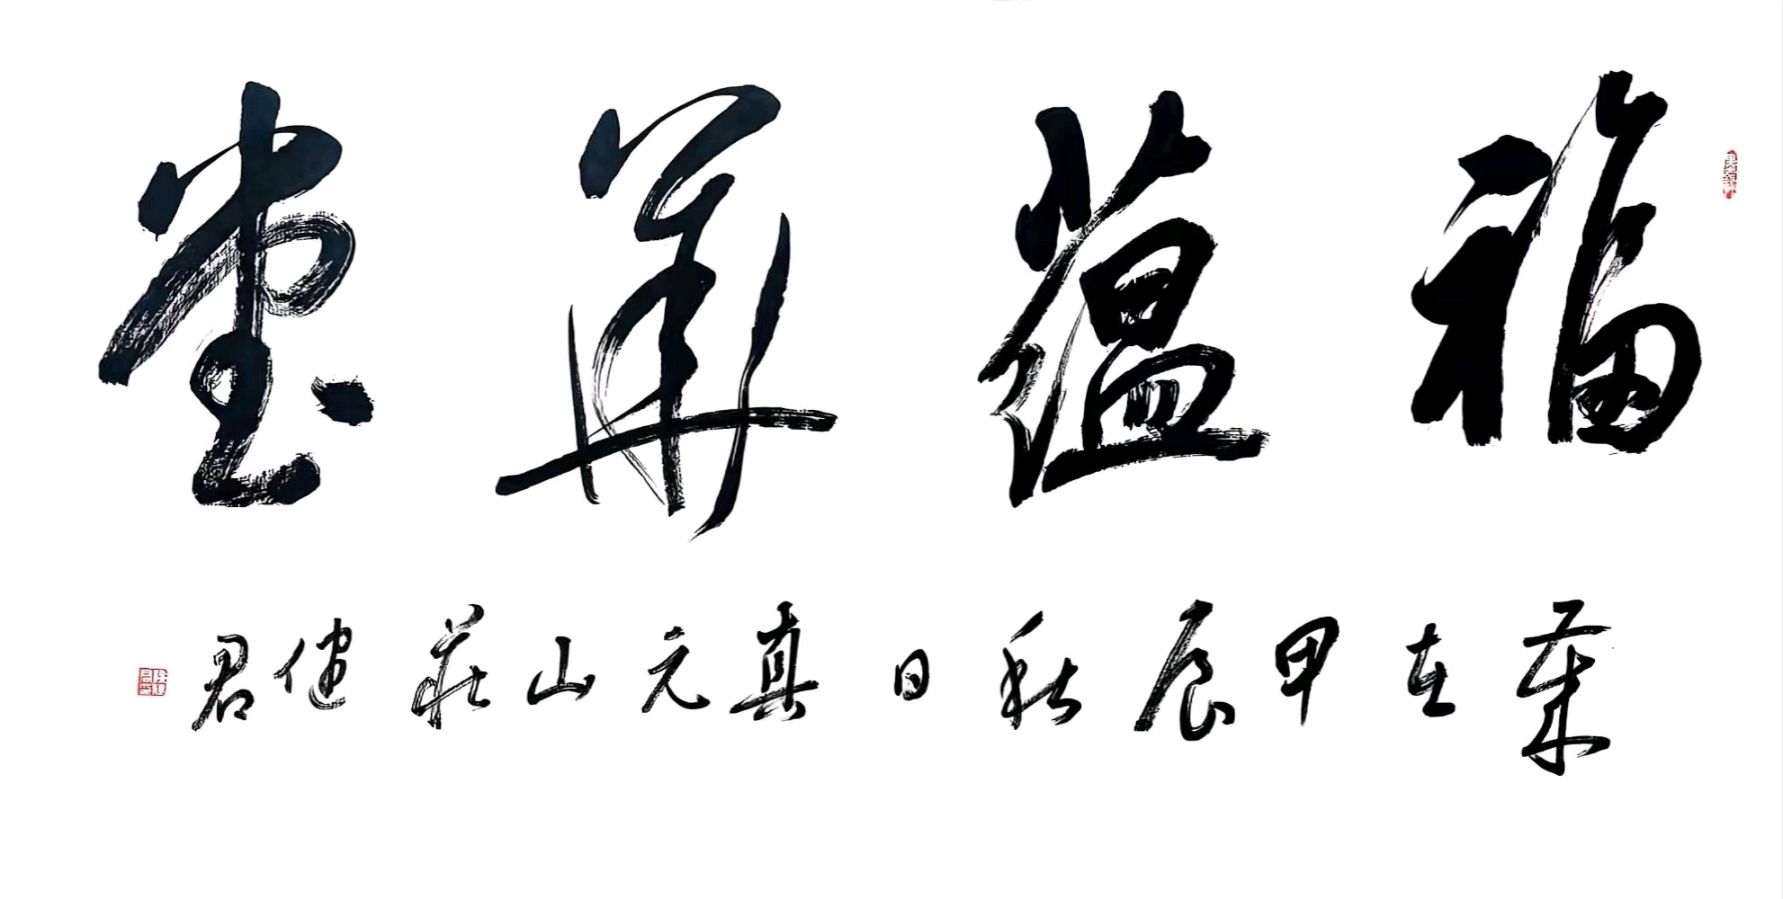 福蕴華堂
歲在甲辰秋日真元山莊健君